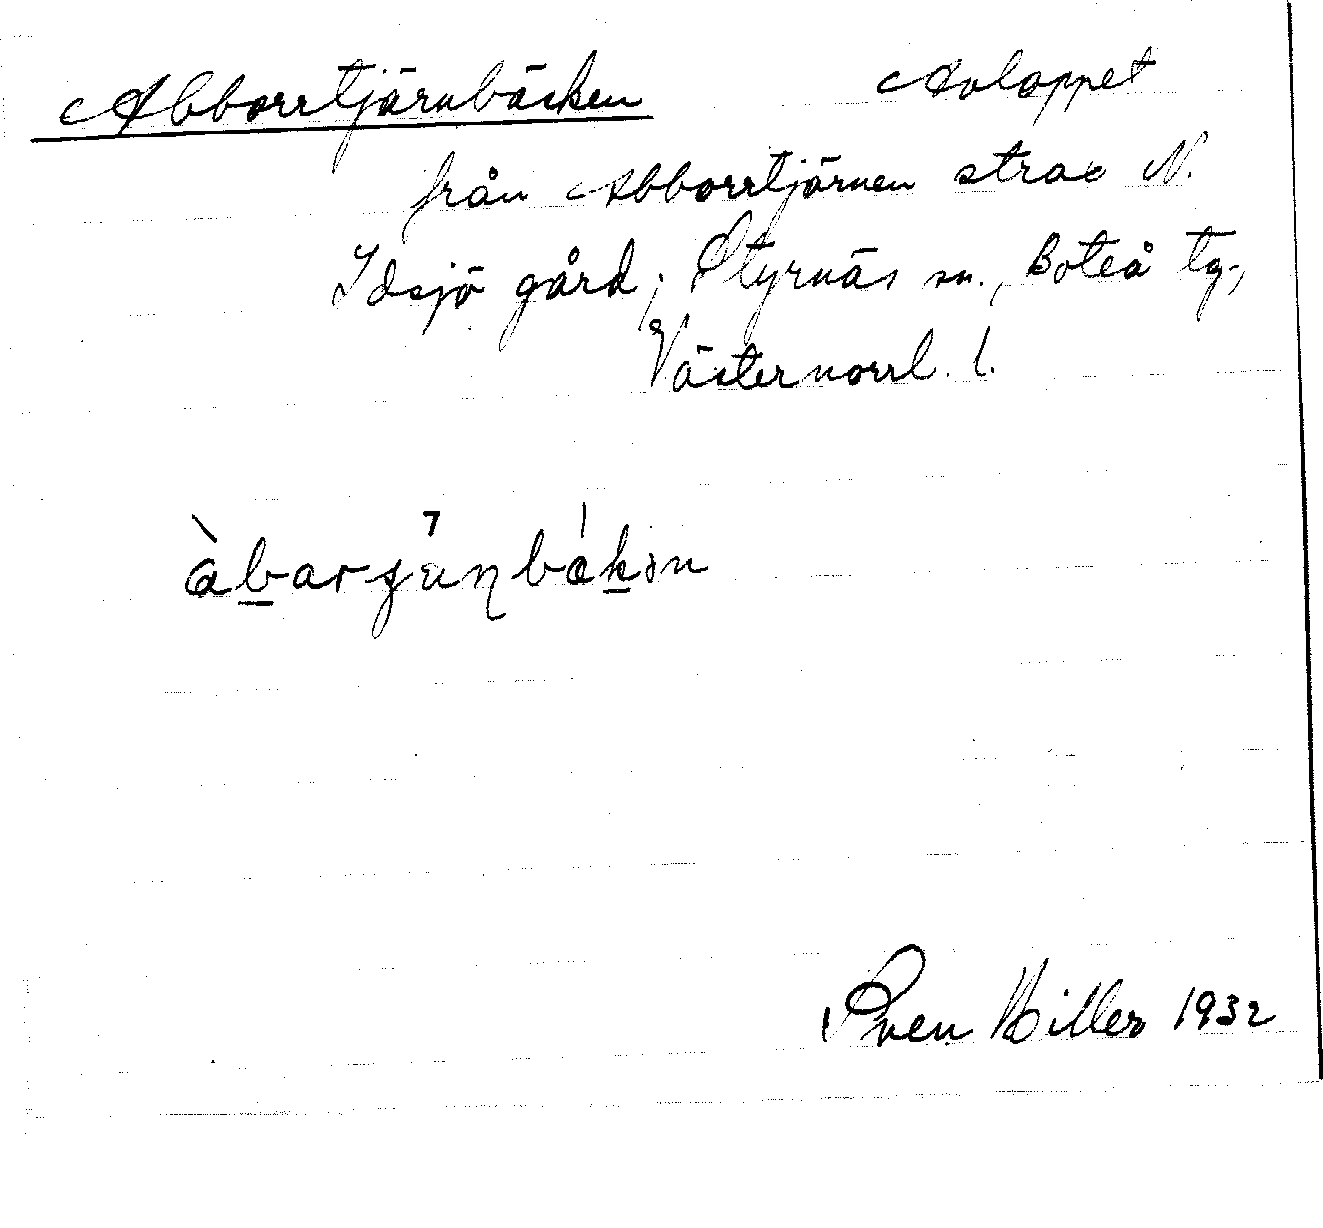 Abborrtjärnbäcken Avloppet
från Abborrtjärnen strax N.
Idsjö gård; Styrnäs sn., Boteå tg.,
Västernorrl. l.
Sven Hiller 1932